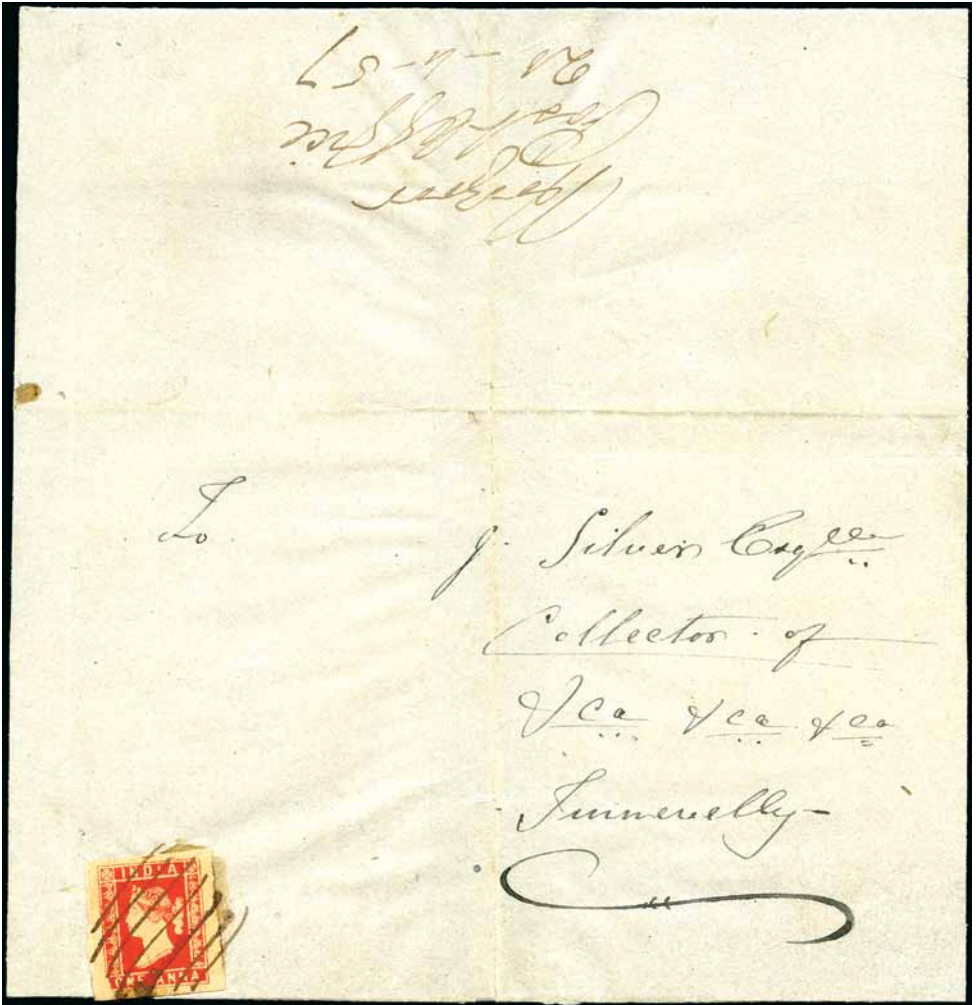 Post Office
21-4-57
To
J. Silver Esqre
Collector of
&ca &ca &ca
Tinnevelly
INDIA
ONE ANNA